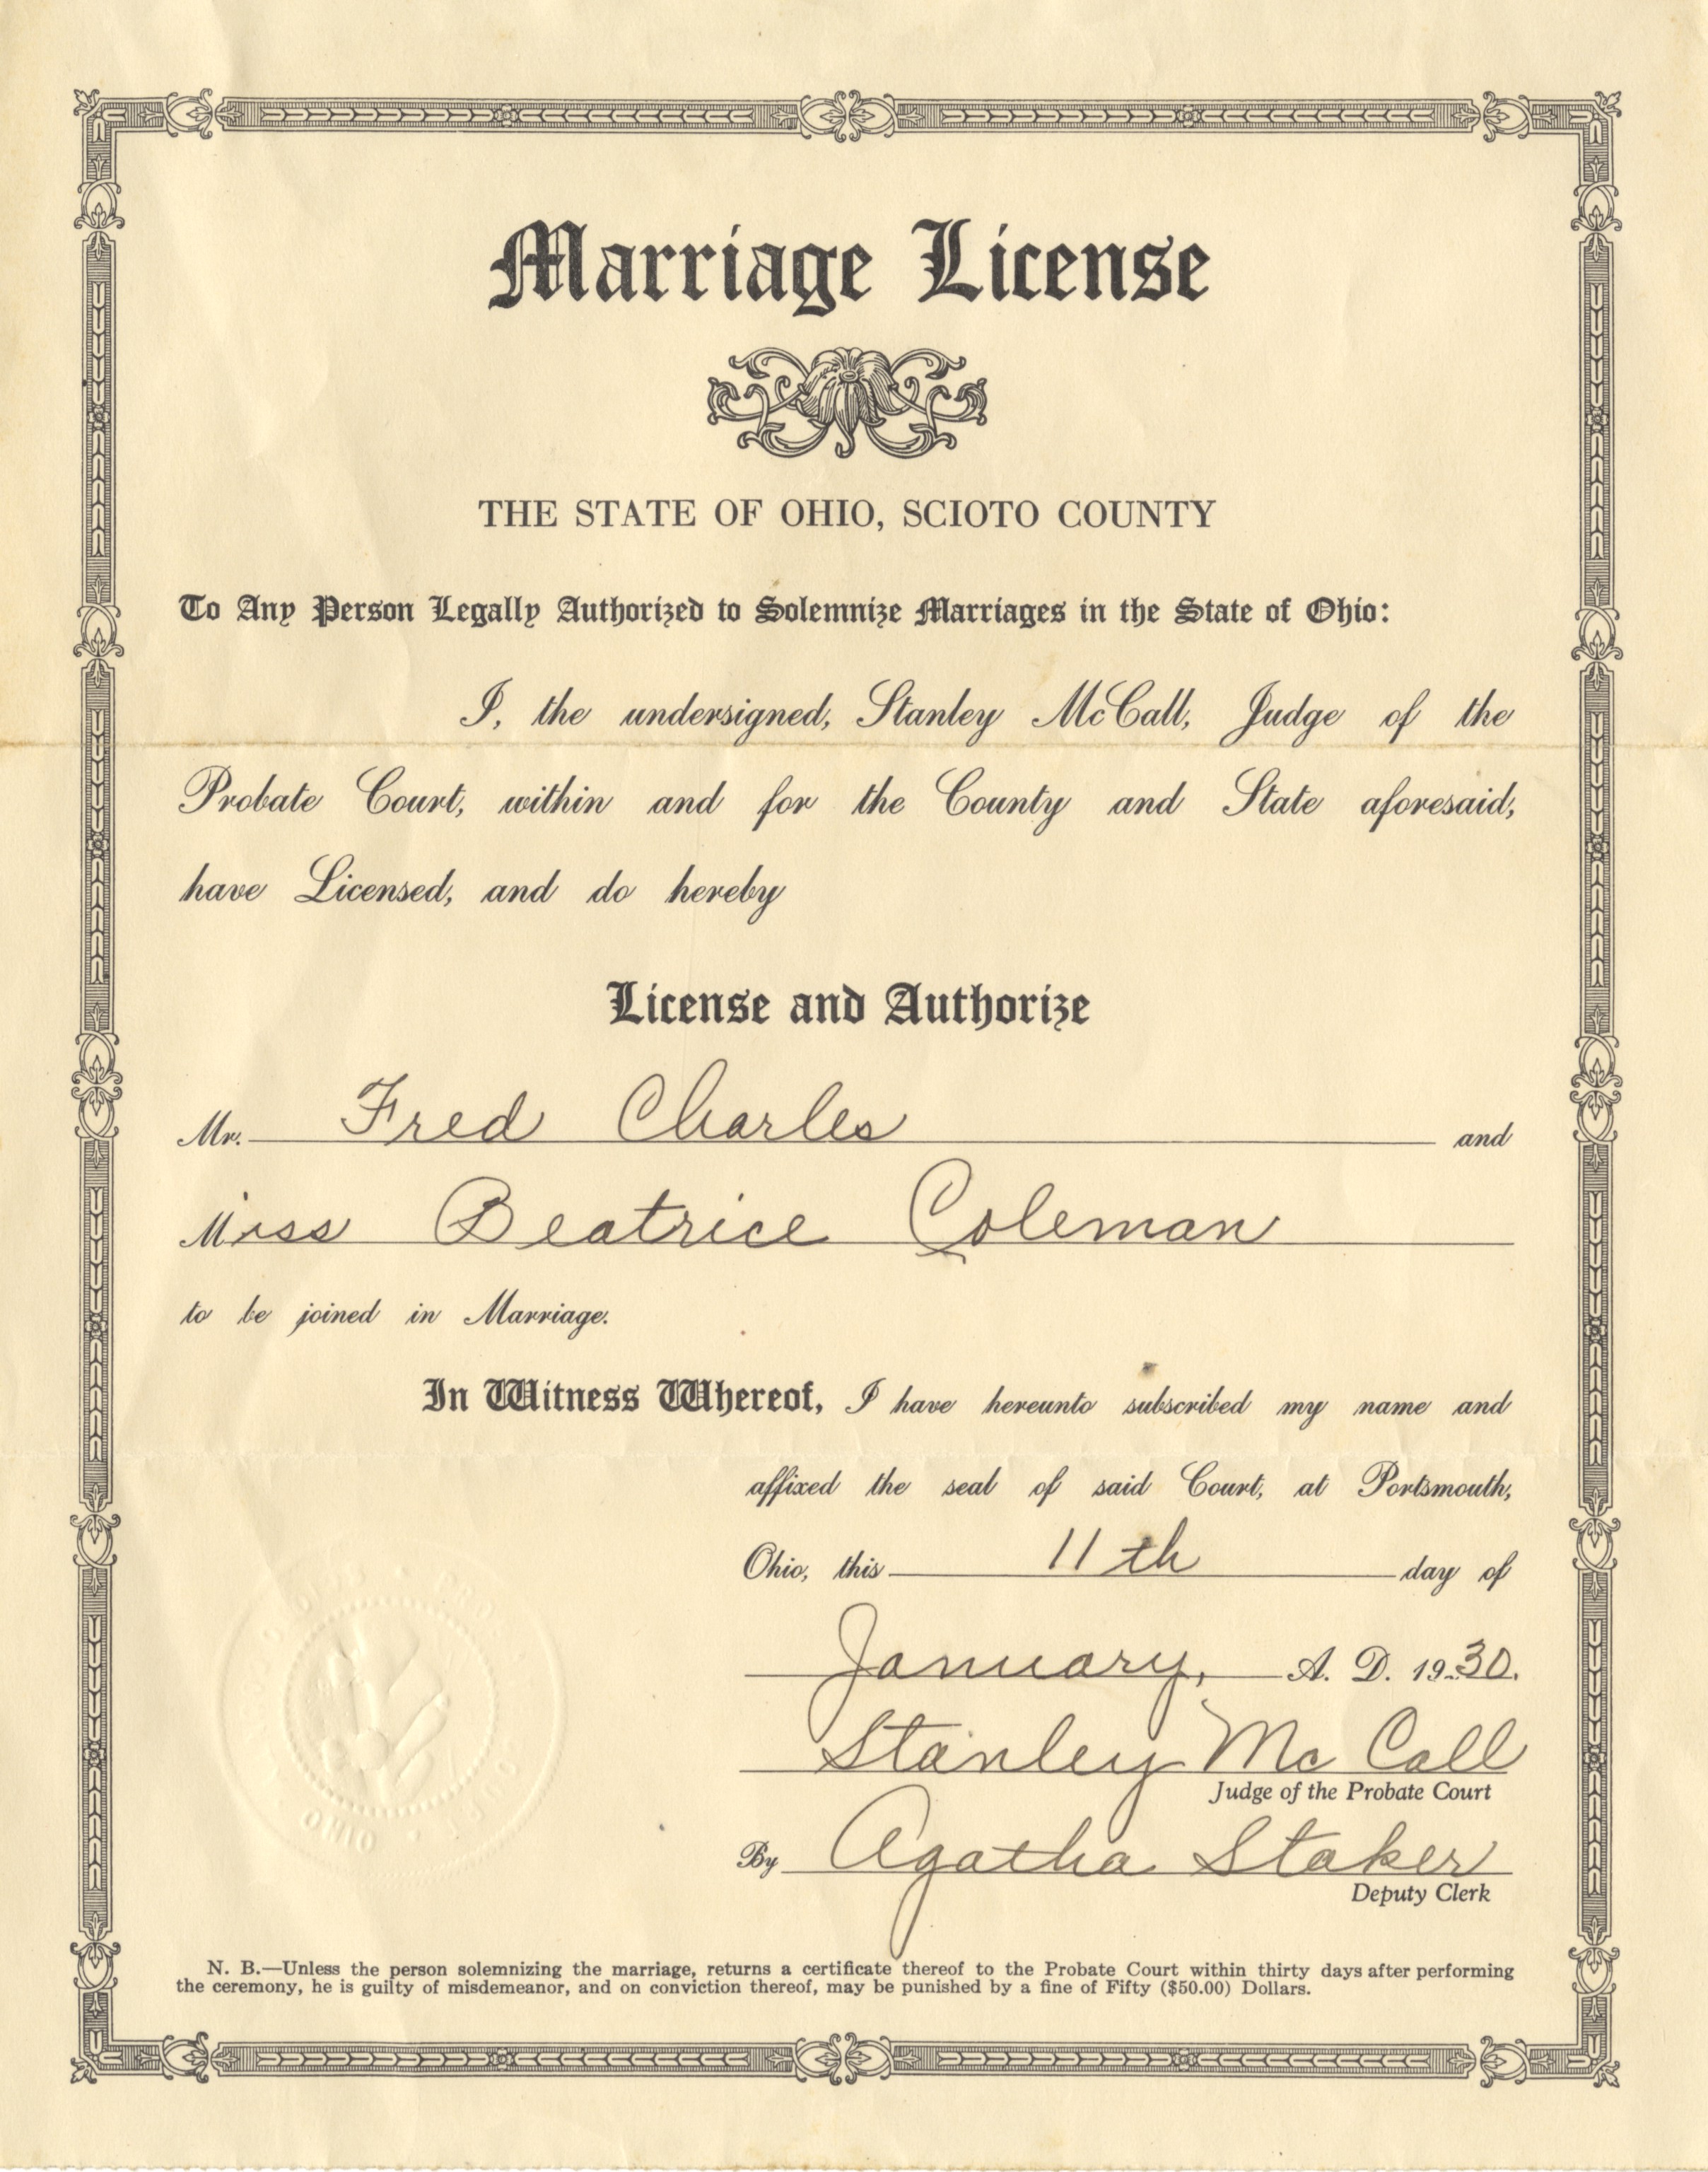 Marriage License
THE STATE OF OHIO, SCIOTO COUNTY
To Any Person Legally Authorized to Solemnize Marriages in the State of Ohio:
I, the undersigned, Stanley McCall, Judge of the
Probate Court, within and for the County and State aforesaid,
have Licensed, and do hereby
License and Authorize
Mr. Fred Charles and
Miss Beatrice Coleman
to be joined in Marriage.
In Witness Whereof, I have hereunto subscribed my name and
affixed the seal of said Court, at Portsmouth,
Ohio, this 11th day of
January, A. D. 1930.
Stanley McCall
Judge of the Probate Court
By Agatha Staker
Deputy Clerk
OHIO
N. B.—Unless the person solemnizing the marriage, returns a certificate thereof to the Probate Court within thirty days after performing
the ceremony, he is guilty of misdemeanor, and on conviction thereof, may be punished by a fine of Fifty ($50.00) Dollars.